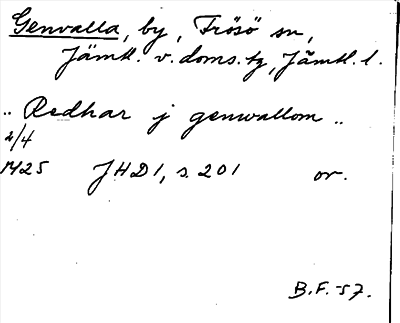 Genvalla, by, Frösö sn,
Jämtl. v. doms. tg, Jämtl. l.
.. Redhar j genwallom ..
2/4
1425 JHD1, s. 201 or.
B.F.-57.